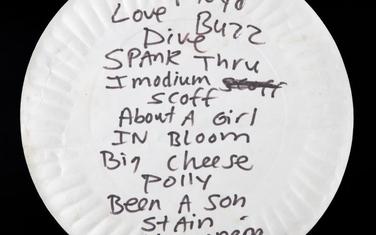 Love Buzz
Dive
SPANK Thru
Imodium
Scoff
About A Girl
IN Bloom
Big Cheese
Polly
Been A Son
StAin